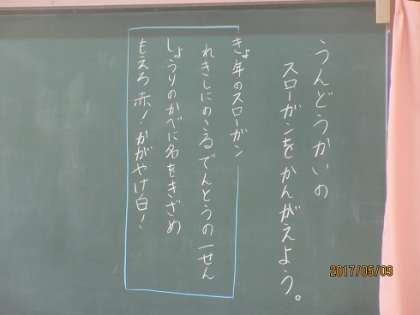 うんどうかいの
スローガンをかんがえよう。
きょ年のスローガン
れきしにのこるでんとうの一せん
しょうりのかべに名をきざめ
もえろ赤!かがやけ白!
2017/05/09